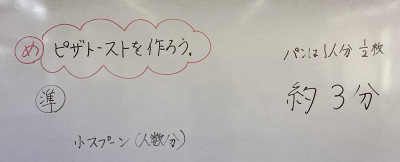 め ピザトーストを作ろう。
パンは1人分 1/2枚
約3分
準
小スプーン(人数分)